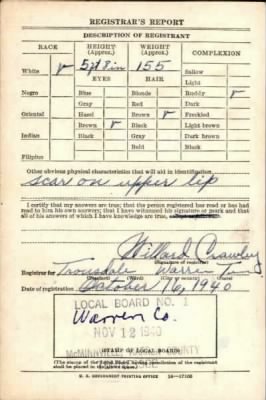 REGISTRAR'S REPORT
DESCRIPTION OF REGISTRANT
RACE HEIGHT (Approx.) WEIGHT (Approx.) COMPLEXION
White ✓ 5 ft 8 in 155 Sallow
Light
EYES HAIR
Negro Blue Blonde Ruddy ✓
Gray Red Dark
Oriental Hazel Brown ✓ Freckled
Brown ✓ Black Light brown
Indian Black Gray Dark brown
Bald Black
Filipino
Other obvious physical characteristics that will aid in identification
scar on upper lip
I certify that my answers are true; that the person registered has read or has
had read to him his own answers; that I have witnessed his signature or mark and that
all of his answers of which I have knowledge are true, except as follows:
Willard Crawley
(Signature of registrar)
Registrar for Trousdale Warren Tenn
Date of registration October 16, 1940
LOCAL BOARD NO. 1
Warren Co.
NOV 12 1940
(STAMP OF LOCAL BOARD)
(The stamp of the Local Board having jurisdiction of the registrant
shall be placed in the above space)
U. S. GOVERNMENT PRINTING OFFICE 16—17105